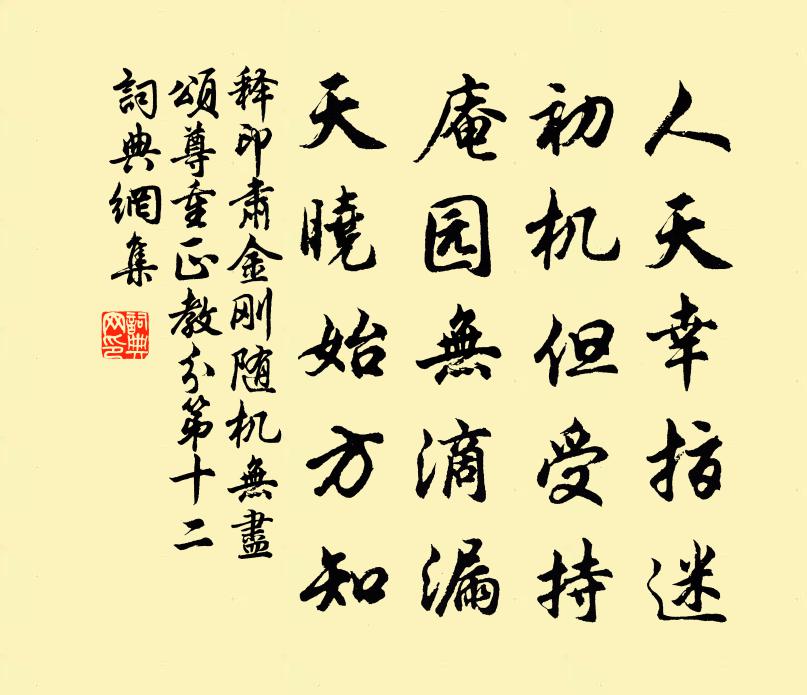 人天幸指迷
初机但受持
庵园無滴漏
天曉始方知
释印肃金刚随机無盡
頌尊重正教分第十二
詞典網集
詞典網印